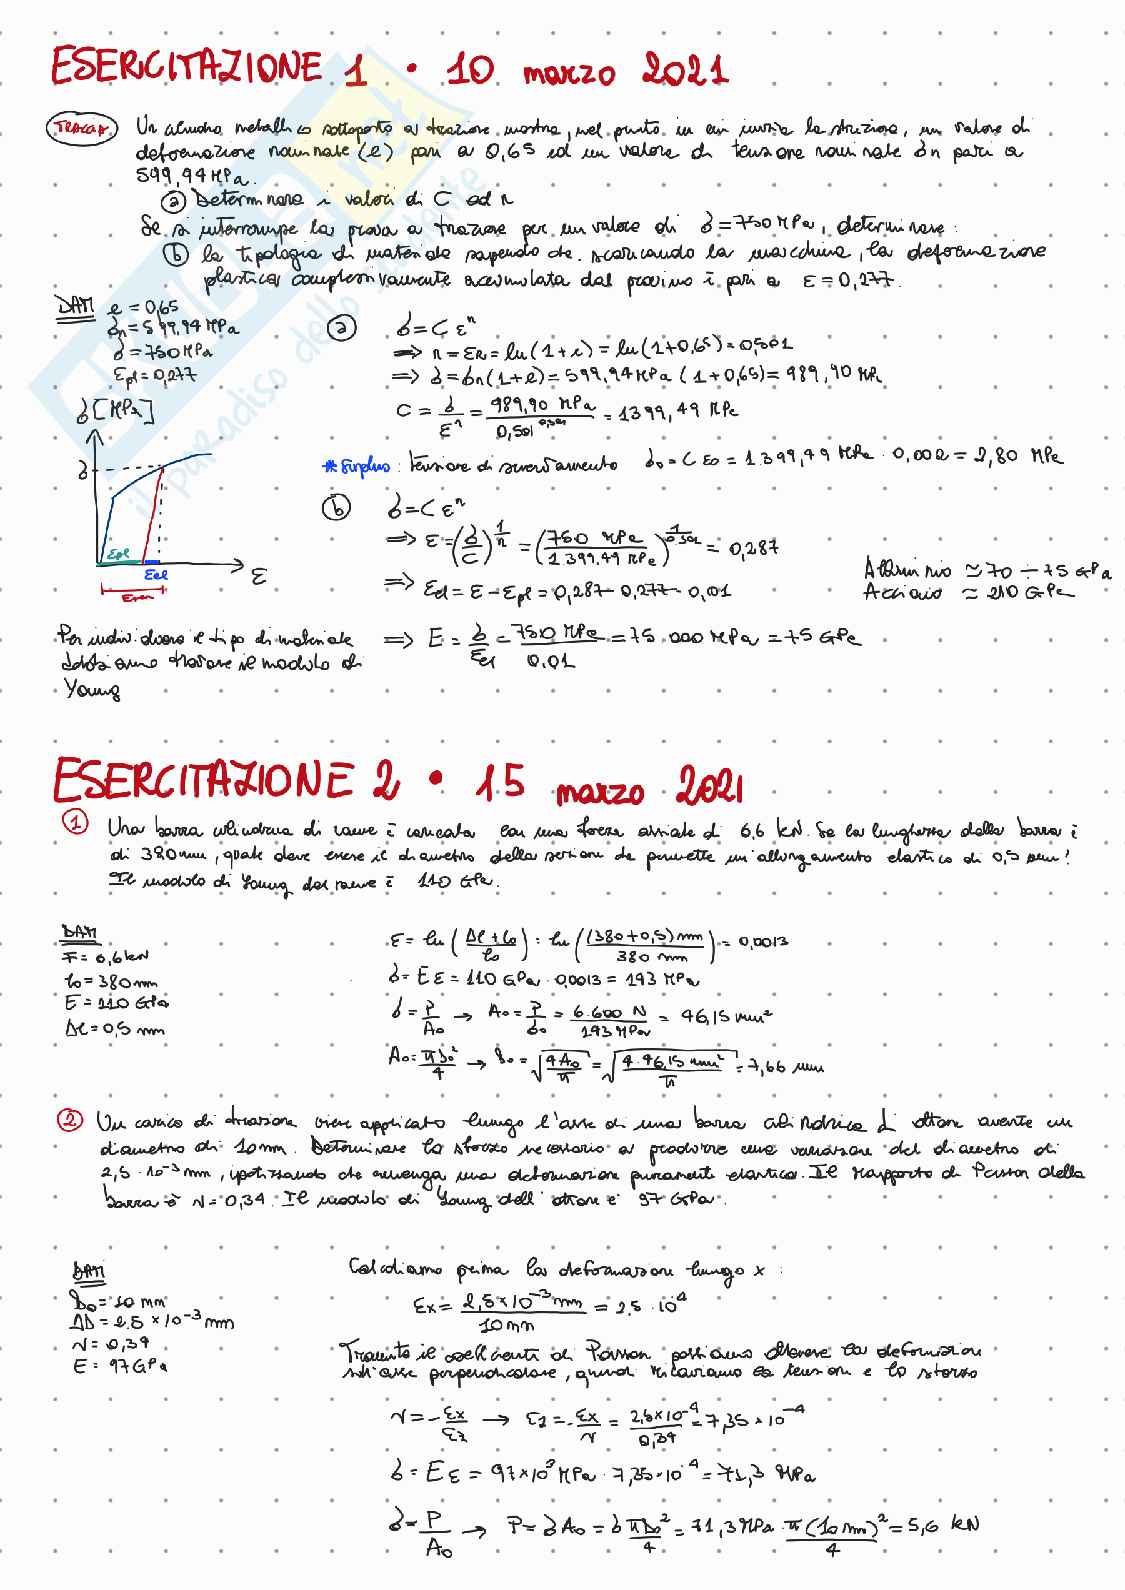 ESERCITAZIONE 1 • 10 marzo 2021
TRACCIA Un cilindro metallico sottoposto a trazione mostra, nel punto in cui inizia la strizione, un valore di
deformazione nominale (e) pari a 0,65 ed un valore di tensione nominale σn pari a
599,94 MPa.
ⓐ Determinare i valori di C ed n
Se si interrompe la prova a trazione per un valore di σ = 750 MPa, determinare:
ⓑ la tipologia di materiale sapendo che, scaricando la macchina, la deformazione
plastica complessivamente accumulata dal provino è pari a ε = 0,277.
DATI
e = 0,65
σn = 599,94 MPa
σ = 750 MPa
εpl = 0,277
σ [MPa]
σ
εpl
εel
ε
ⓐ σ = C εⁿ
⇒ n = εn = ln(1+e) = ln(1+0,65) = 0,501
⇒ σ = σn(1+e) = 599,94 MPa (1+0,65) = 989,90 MPa
C = σ/εⁿ = 989,90 MPa / 0,501^0,501 = 1399,49 MPa
* Surplus: tensione di snervamento σ₀ = C ε₀ = 1399,49 MPa · 0,002 = 2,80 MPa
ⓑ σ = C εⁿ
⇒ ε = (σ/C)^(1/n) = (750 MPa / 1399.49 MPa)^(1/0.501) = 0,287
⇒ εel = ε - εpl = 0,287 - 0,277 = 0,01
Alluminio ≃ 70 ÷ 75 GPa
Acciaio ≃ 210 GPa
Per individuare il tipo di materiale
dobbiamo trovare il modulo di
Young
⇒ E = σ/εel = 750 MPa / 0.01 = 75.000 MPa = 75 GPa
ESERCITAZIONE 2 • 15 marzo 2021
① Una barra cilindrica di rame è caricata con una forza assiale di 6,6 kN. Se la lunghezza della barra è
di 380mm, quale deve essere il diametro della sezione che permette un'allungamento elastico di 0,5 mm?
Il modulo di Young del rame è 110 GPa.
DATI
F = 6,6 kN
l₀ = 380 mm
E = 110 GPa
Δl = 0,5 mm
ε = ln (Δl + l₀ / l₀) = ln ((380+0,5) mm / 380 mm) = 0,0013
σ = E ε = 110 GPa · 0,0013 = 143 MPa
σ = P/A₀ → A₀ = P/σ₀ = 6.600 N / 143 MPa = 46,15 mm²
A₀ = πD₀²/4 → D₀ = √(4A₀/π) = √(4·46,15 mm²/π) = 7,66 mm
② Un carico di trazione viene applicato lungo l'asse di una barra cilindrica di ottone avente un
diametro di 10mm. Determinare lo sforzo necessario a produrre una variazione del diametro di
2,5 · 10⁻³ mm, ipotizzando che avvenga una deformazione puramente elastica. Il rapporto di Poisson della
barra è ν = 0,34. Il modulo di Young dell'ottone è 97 GPa.
DATI
D₀ = 10 mm
ΔD = 2.5 × 10⁻³ mm
ν = 0,34
E = 97 GPa
Calcoliamo prima la deformazione lungo x:
εx = 2,5×10⁻³ mm / 10 mm = 2.5 · 10⁻⁴
Tramite il coefficiente di Poisson possiamo ottenere la deformazione
sull'asse perpendicolare, quindi ricaviamo la tensione e lo sforzo
ν = - εx/εz → εz = - εx/ν = 2,5×10⁻⁴ / 0,34 = 7,35 × 10⁻⁴
σ = E ε = 97×10³ MPa · 7,35·10⁻⁴ = 71,3 MPa
σ = P/A₀ → P = σ A₀ = σ πD₀²/4 = 71,3 MPa · π(10 mm)²/4 = 5,6 kN